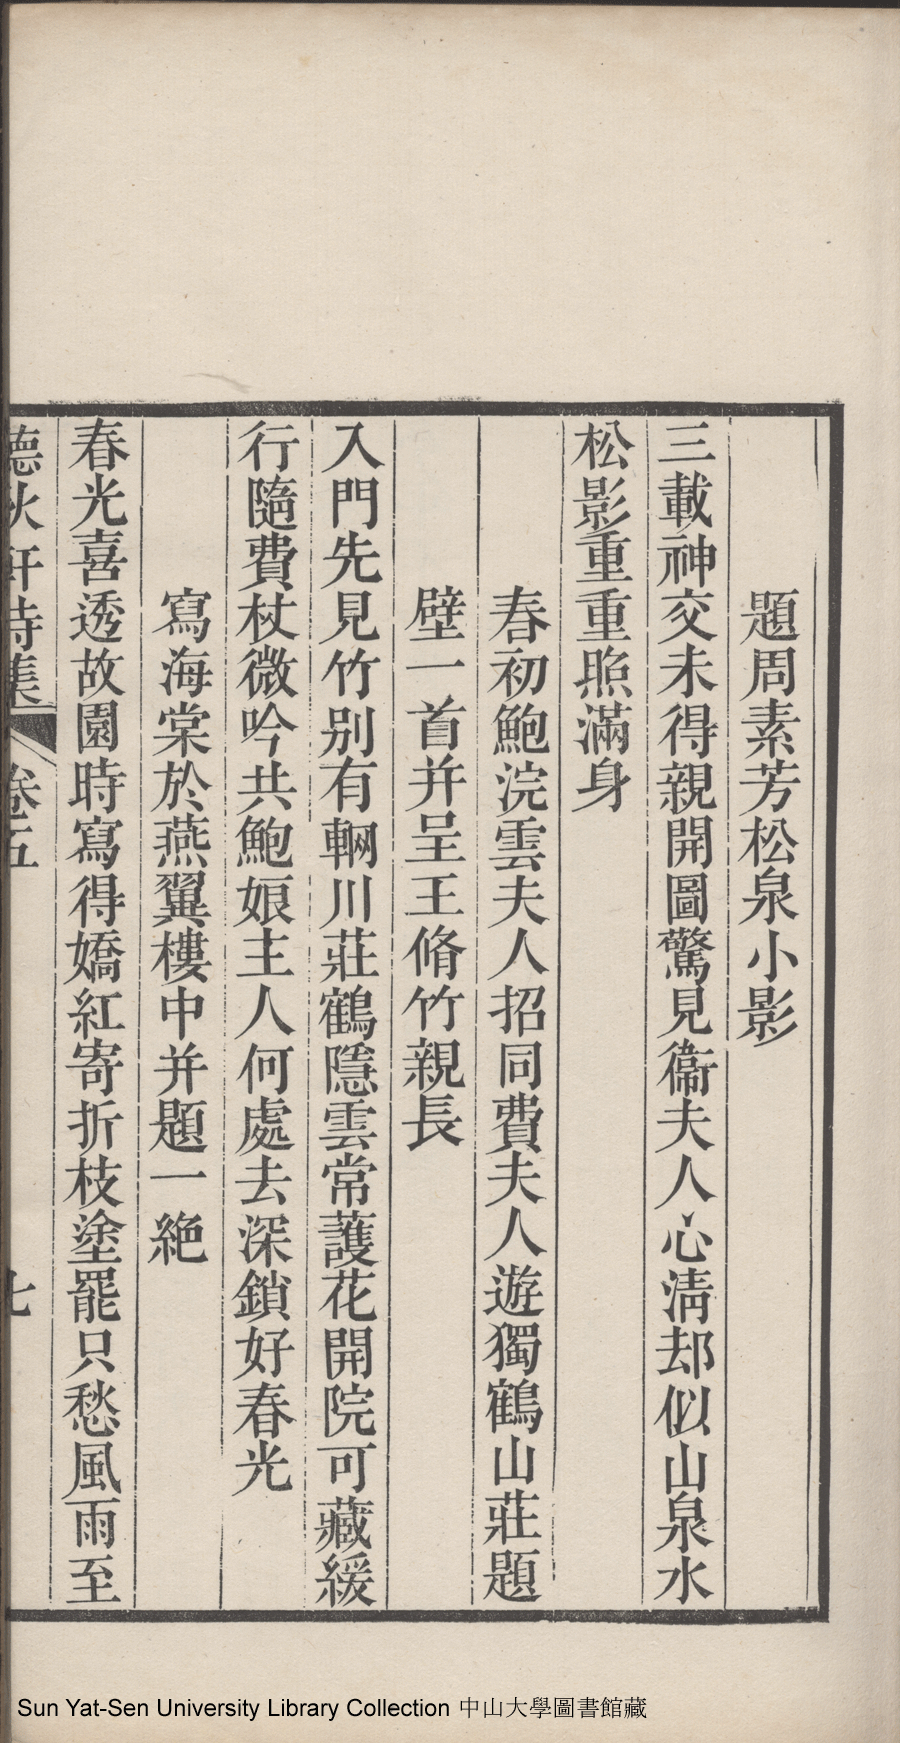 題周素芳松泉小影
三載神交未得親開圖驚見衞夫人心清却似山泉水
松影重重照滿身
春初鮑浣雲夫人招同費夫人遊獨鶴山莊題
壁一首并呈王脩竹親長
入門先見竹別有輞川莊鶴隱雲常護花開院可藏緩
行隨費杖微吟共鮑娘主人何處去深鎖好春光
寫海棠於燕翼樓中并題一絶
春光喜透故園時寫得嬌紅寄折枝塗罷只愁風雨至
聽秋軒詩集 卷五 七
Sun Yat-Sen University Library Collection 中山大學圖書館藏